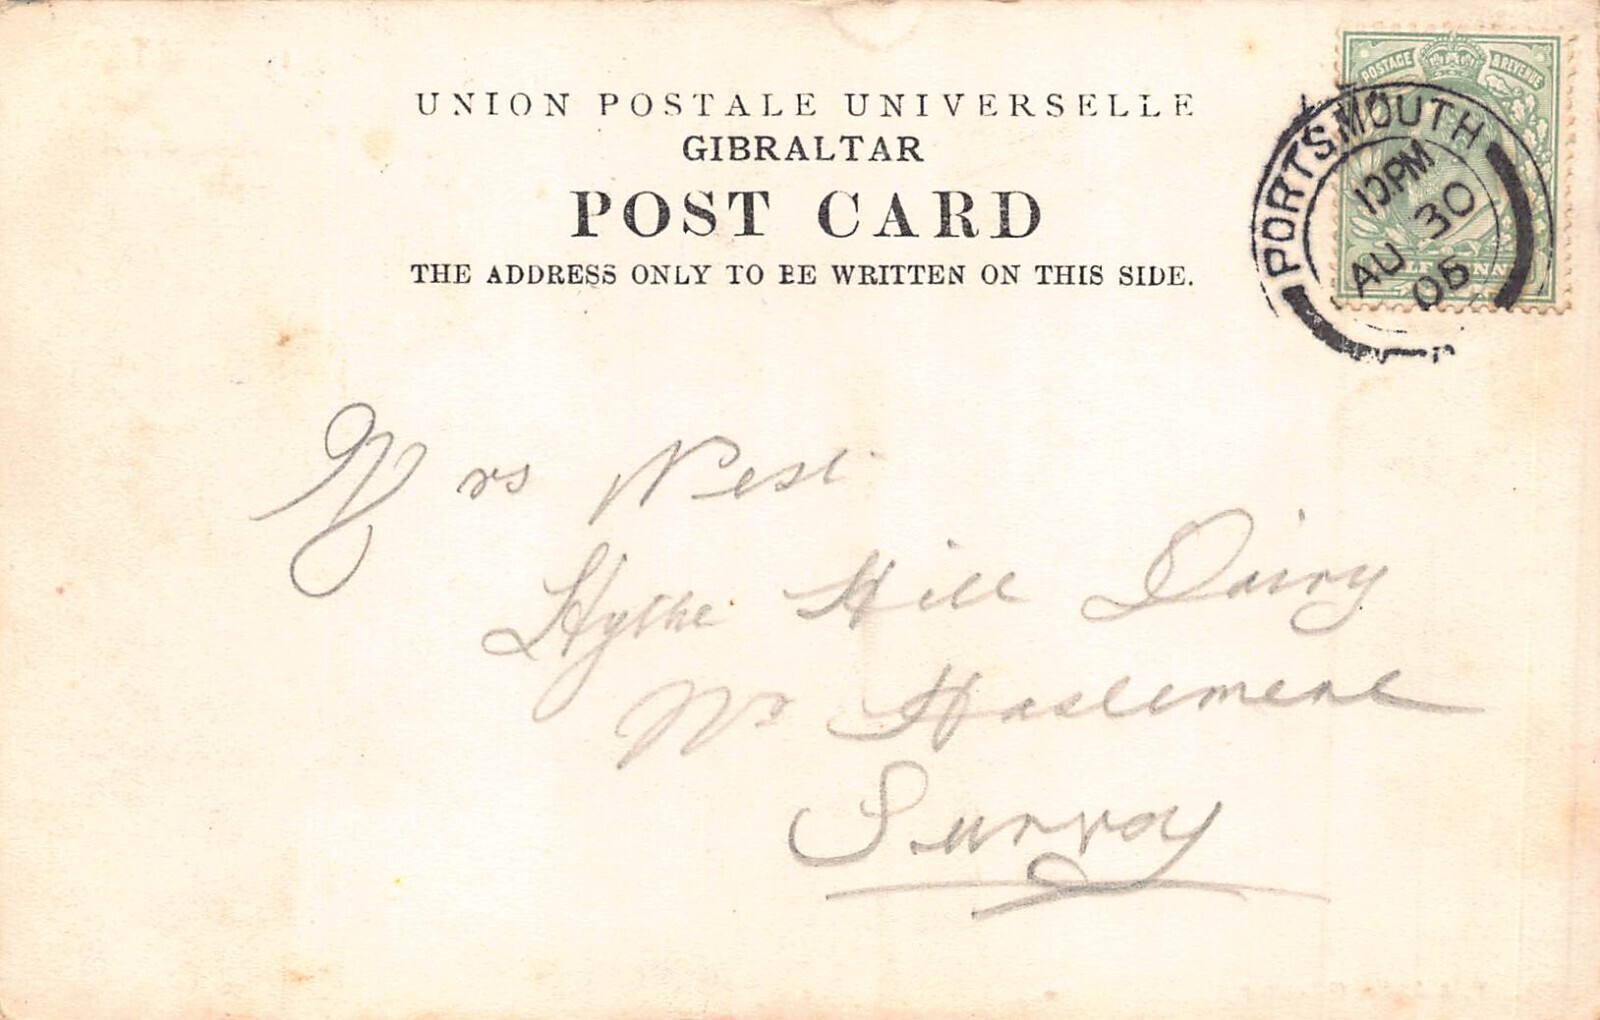 UNION POSTALE UNIVERSELLE
GIBRALTAR
POST CARD
THE ADDRESS ONLY TO BE WRITTEN ON THIS SIDE.
POSTAGE & REVENUE
PORTSMOUTH
10.PM
AU 30
06
Mrs West
Hythe Hill Dairy
Nr Haslemere
Surrey